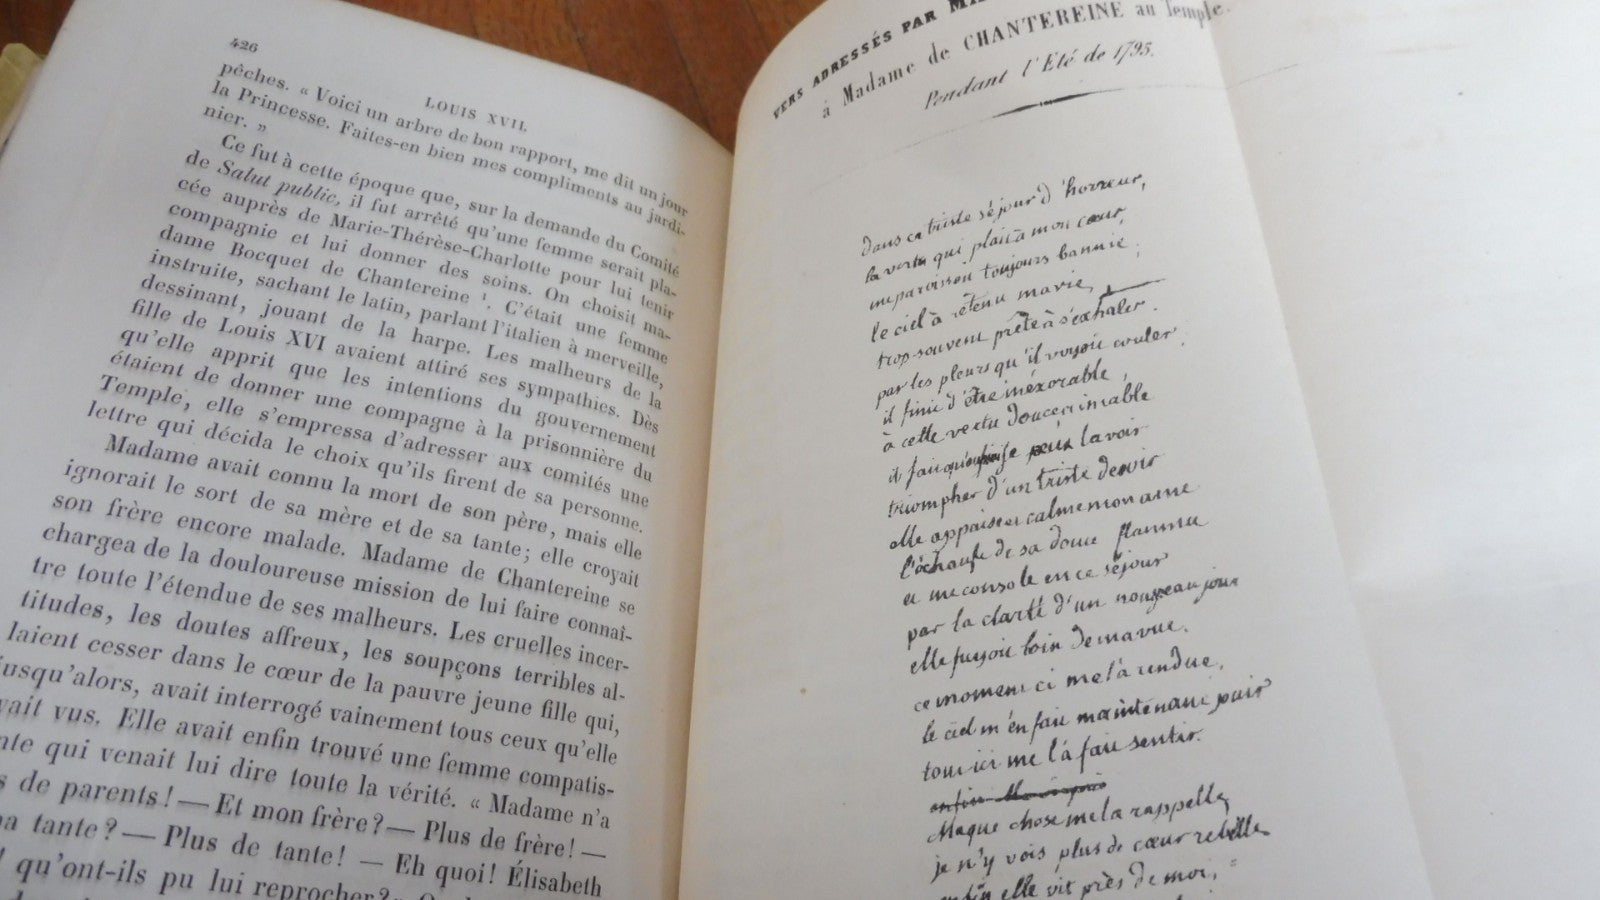 426
LOUIS XVII.
pêches. « Voici un arbre de bon rapport, me dit un jour
la Princesse. Faites-en bien mes compliments au jardi-
nier. »
Ce fut à cette époque que, sur la demande du Comité
de Salut public, il fut arrêté qu'une femme serait pla-
cée auprès de Marie-Thérèse-Charlotte pour lui tenir
compagnie et lui donner des soins. On choisit ma-
dame Bocquet de Chantereine 1. C'était une femme
instruite, sachant le latin, parlant l'italien à merveille,
dessinant, jouant de la harpe. Les malheurs de la
fille de Louis XVI avaient attiré ses sympathies. Dès
qu'elle apprit que les intentions du gouvernement
étaient de donner une compagne à la prisonnière du
Temple, elle s'empressa d'adresser aux comités une
lettre qui décida le choix qu'ils firent de sa personne.
Madame avait connu la mort de son père, mais elle
ignorait le sort de sa mère et de sa tante; elle croyait
son frère encore malade. Madame de Chantereine se
chargea de la douloureuse mission de lui faire connaî-
tre toute l'étendue de ses malheurs. Les cruelles incer-
titudes, les doutes affreux, les soupçons terribles al-
laient cesser dans le cœur de la pauvre jeune fille qui,
jusqu'alors, avait interrogé vainement tous ceux qu'elle
vait vus. Elle avait enfin trouvé une femme compatis-
nte qui venait lui dire toute la vérité. « Madame n'a
s de parents! — Et mon frère? — Plus de frère! —
a tante? — Plus de tante! — Eh quoi! Élisabeth
! qu'ont-ils pu lui reprocher?
VERS ADRESSÉS PAR
à Madame de CHANTEREINE au Temple.
Pendant l'Eté de 1795.
dans ce triste séjour d'horreur,
la vertu qui plait à mon cœur,
me paroisoit toujours bannie;
le ciel à retenu ma vie,
trop souvent prête à s'exhaler.
par les pleurs qu'il voyoit couler;
il finit d'être inéxorable,
à cette vertu douce et aimable
il fait
triompher d'un triste devoir
elle appaise et calme mon ame
l'échaufe de sa douce flamme
et me console en ce séjour
par la clarté d'un nouveau jour
elle fuyoit loin de ma vue.
ce moment ci me l'à rendue,
le ciel m'en fait maintenant jouir
tout ici me l'à fait sentir.
enfin
chaque chose me la rappelle,
je n'y vois plus de cœur rebelle
enfin elle vit près de moi,